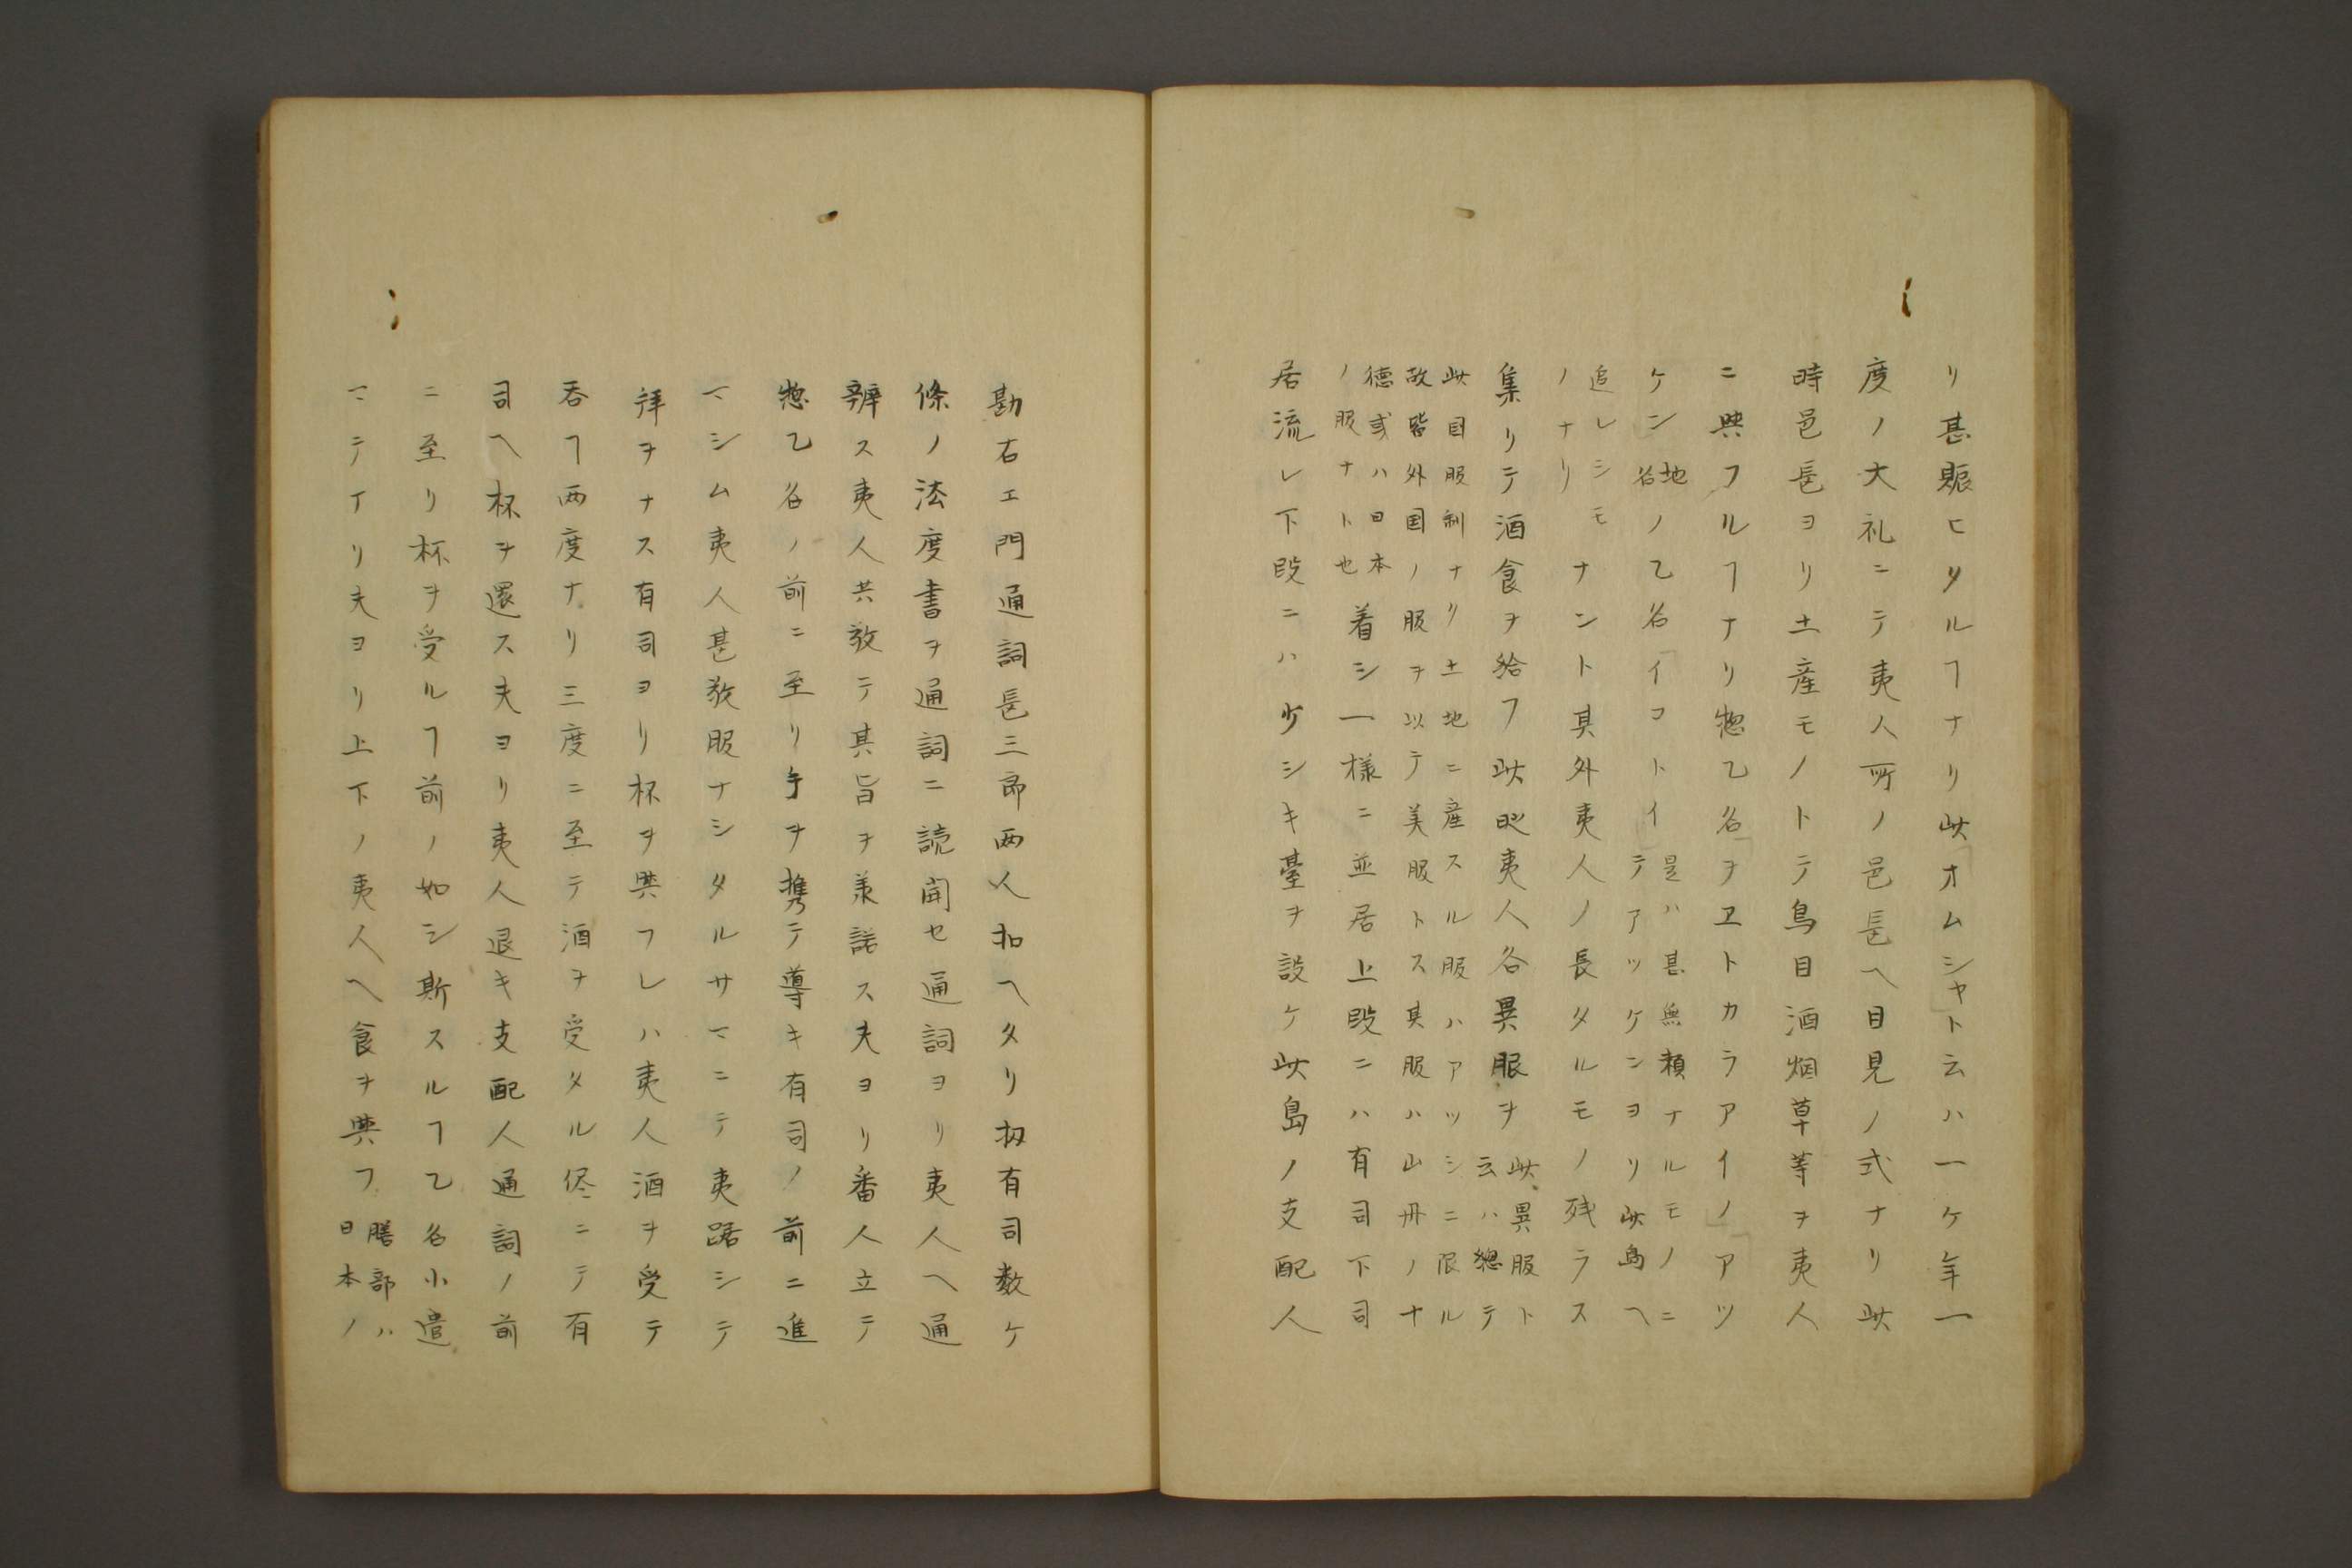 リ甚賑ヒタルヿナリ此「オムシャ」ト云ハ一ケ年一
度ノ大礼ニテ夷人所ノ邑長ヘ目見ノ式ナリ此
時邑長ヨリ土産モノトテ鳥目酒烟草等ヲ夷人
ニ與フルヿナリ惣乙名「ヲヱトカラアイノ」「アツ
ケン地名ノ乙名「イコトイ」是ハ甚無頼ナルモノニ
テアツケンヨリ此島ヘ
追レシモ
ノナリナント其外夷人ノ長タルモノ残ラス
集リテ酒食ヲ給フ此時夷人各異服ヲ此異服ト
云ハ総テ
此国服制ナリ土地ニ産スル服ハアツシニ限ル
故皆外国ノ服ヲ以テ美服トス其服ハ山丹ノ十
徳或ハ日本
ノ服ナト也着シ一様ニ並居上段ニハ有司下司
居流レ下段ニハ少シキ臺ヲ設ケ此島ノ支配人
勘右エ門通詞長三郎両人扣ヘタリ扨有司数ケ
條ノ法度書ヲ通詞ニ読聞セ通詞ヨリ夷人ヘ通
辨ス夷人共敬テ其旨ヲ承諾ス夫ヨリ番人立テ
惣乙名ノ前ニ至リ手ヲ携テ導キ有司ノ前ニ進
マシム夷人甚敬服ナシタルサマニテ夷踞シテ
拝ヲナス有司ヨリ杯ヲ與フレハ夷人酒ヲ受テ
呑ヿ両度ナリ三度ニ至テ酒ヲ受タル侭ニテ有
司ヘ杯ヲ還ス夫ヨリ夷人退キ支配人通詞ノ前
ニ至リ杯ヲ受ルヿ前ノ如シ斯スルヿ乙名小遣
マテイリ夫ヨリ上下ノ夷人ヘ食ヲ與フ膳部ハ
日本ノ